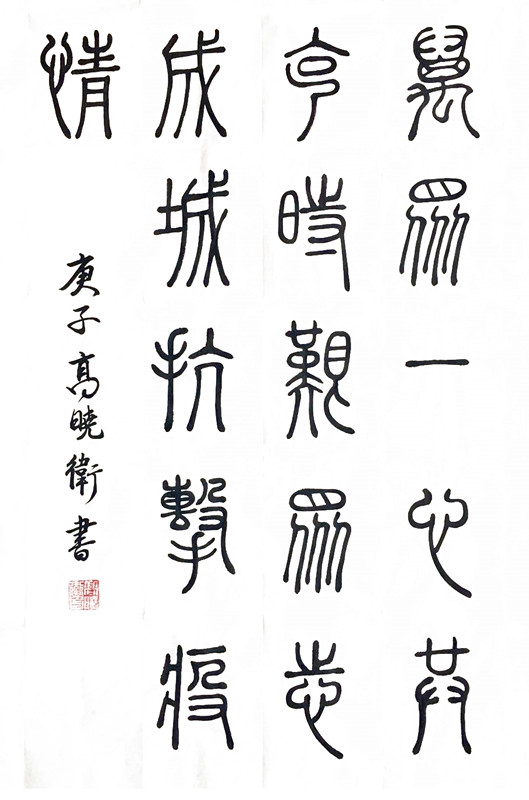 萬眾一心共
克時艱眾志
成城抗擊疫
情
庚子高曉衛書